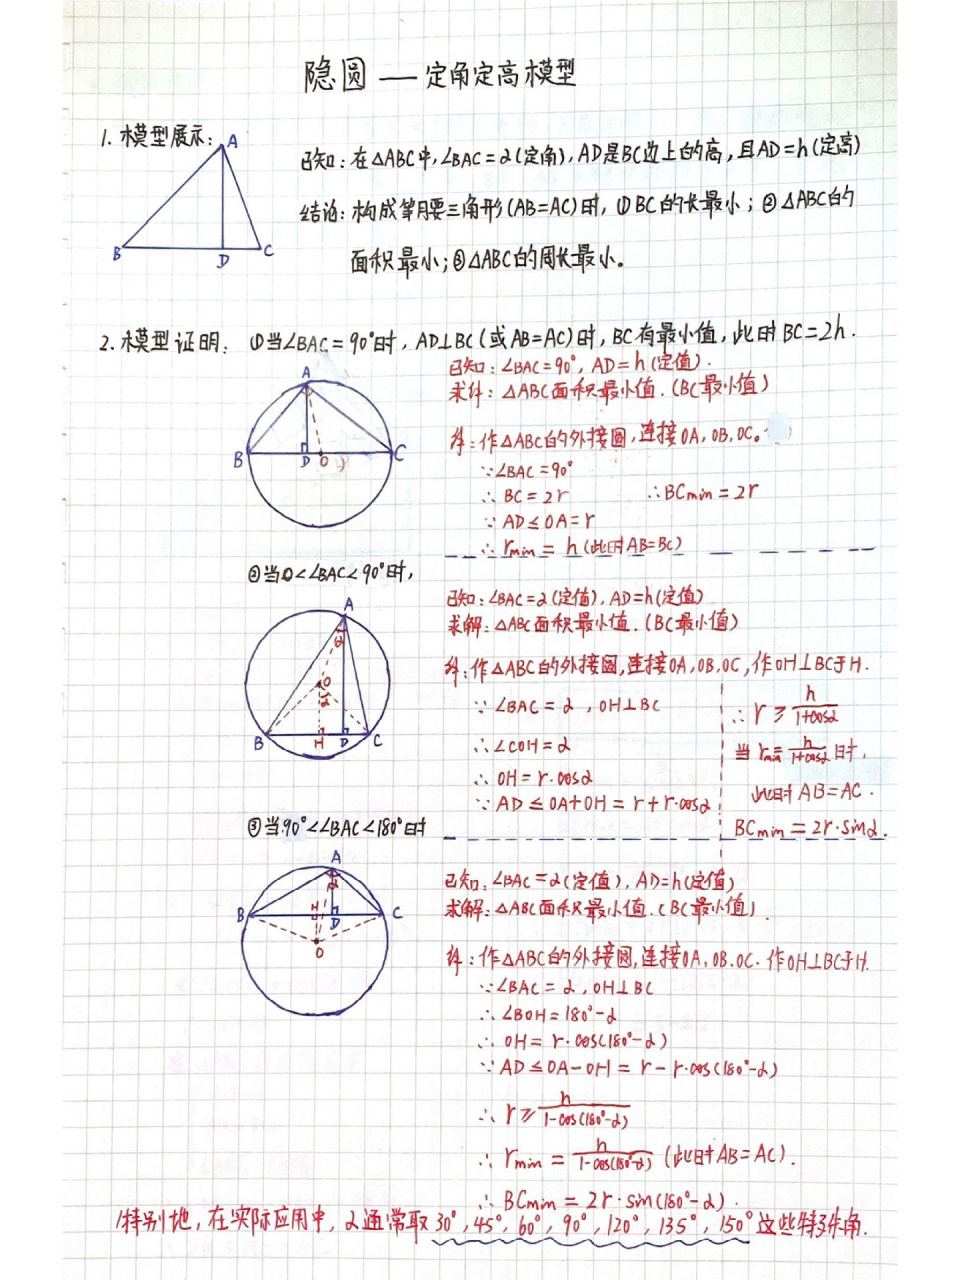 隐圆 — 定角定高模型
1. 模型展示:
A
已知: 在△ABC中, ∠BAC = α (定角), AD是BC边上的高, 且AD = h (定高)
结论: 构成等腰三角形 (AB=AC) 时, ① BC的长最小; ② △ABC的
面积最小; ③ △ABC的周长最小。
B D C
2. 模型证明: ① 当∠BAC = 90°时, AD⊥BC (或AB=AC) 时, BC有最小值, 此时BC=2h.
已知: ∠BAC=90°, AD=h (定值).
求解: △ABC面积最小值. (BC最小值)
A
B D O C
解: 作△ABC的外接圆, 连接OA, OB, OC。
∵∠BAC=90°
∴ BC = 2r ∴BCmin = 2r
∵ AD ≤ OA = r
∴ rmin = h (此时AB=BC)
② 当0<∠BAC<90°时,
已知: ∠BAC=α (定值), AD=h (定值)
求解: △ABC面积最小值. (BC最小值)
A
α
O
α
B H D C
解: 作△ABC的外接圆, 连接OA, OB, OC, 作OH⊥BC于H.
∵ ∠BAC = α, OH⊥BC
∴∠COH = α
∴ OH = r·cosα
∵ AD ≤ OA+OH = r+r·cosα
∴ r ≥ h/1+cosα
当 rmin = h/1+cosα 时,
此时 AB=AC.
BCmin = 2r·sinα.
③ 当90°<∠BAC<180°时
已知: ∠BAC=α (定值), AD=h (定值)
求解: △ABC面积最小值. (BC最小值).
A
α
B H D C
O
解: 作△ABC的外接圆, 连接OA, OB. OC. 作OH⊥BC于H.
∵∠BAC = α, OH⊥BC
∴ ∠BOH = 180°-α
∴ OH = r·cos(180°-α)
∵ AD ≤ OA-OH = r-r·cos(180°-α)
∴ r ≥ h/1-cos(180°-α)
∴ rmin = h/1-cos(180°-α) (此时AB=AC).
∴ BCmin = 2r·sin(180°-α).
特别地, 在实际应用中, α通常取30°, 45°, 60°, 90°, 120°, 135°, 150°这些特殊角.